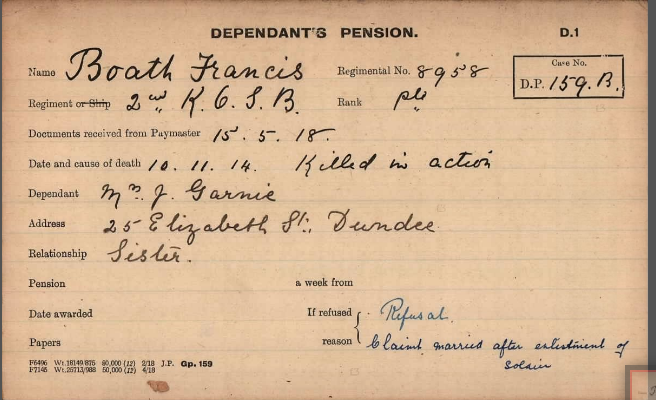 DEPENDANT'S PENSION. D.1
Name Boath Francis Regimental No. 8958 Case No.
D.P. 159.B.
Regiment or Ship 2nd K.O.S.B. Rank Pte
Documents received from Paymaster 15. 5. 18.
Date and cause of death 10. 11. 14. Killed in action
Dependant Mrs J. Garnie
Address 25 Elizabeth St., Dundee
Relationship Sister.
Pension a week from
Date awarded If refused Refusal.
Papers reason Claimt married after enlistment of
soldier
F6496 Wt.16149/875 80,000 (12) 2/18 J.P. Gp. 159
F7145 Wt.25713/988 50,000 (12) 4/18